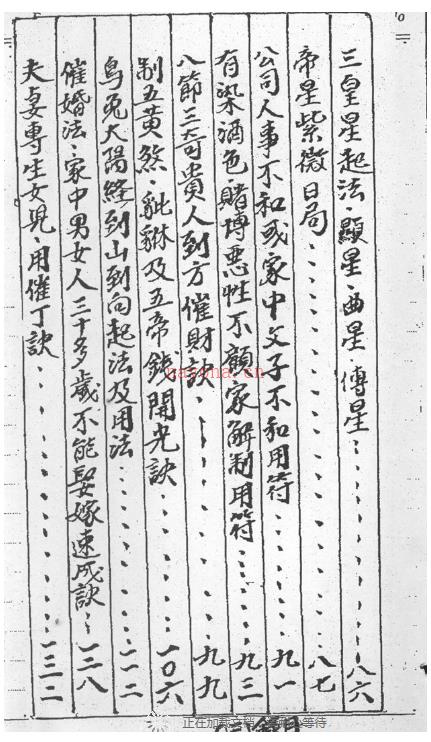 三皇星起法·顯星·曲星·傅星·······八六
帝星紫微日局·······八七
公司人事不和或家中父子不和用符·······九一
有染酒色賭博惡性不顧家解制用符·······九三
八節三奇貴人到方催財訣·······九九
制五黃煞·貔貅及五帝錢開光訣·······一〇六
烏兔太陽經到山到向起法及用法·······一一二
催婚法·家中男女人三十多歲不能娶嫁速成訣···一二八
夫妻專生女児·用催丁訣·······一三二
nayona.cn